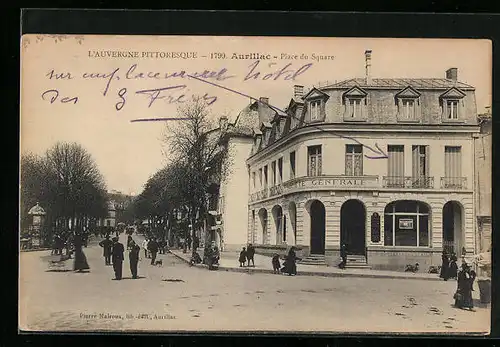 L'AUVERGNE PITTORESQUE — 1799. Aurillac – Place du Square
sur emplacement de l'hôtel
des 3 Frères
TÉ GÉNÉRALE
Pierre Malroux, lib.-édit., Aurillac